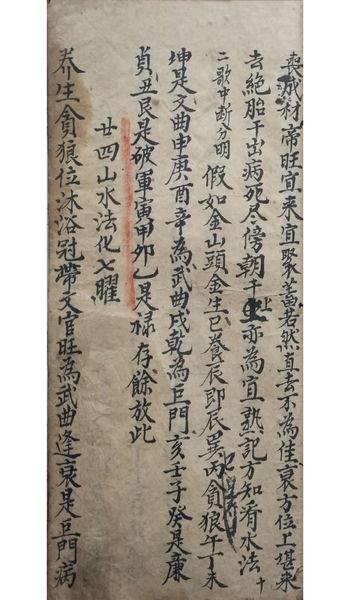 喪成材帝旺宜来宜聚蓄若然直去不為佳衰方位上堪来
去絶胎干出病死尽傍朝干上亦為宜熟記方知看水法十
二歌中断分明 假如金山頭金生巳養辰即辰巽丙貪狼午丁未
坤是文曲申庚酉辛為武曲戌乾為巨門亥壬子癸是廉
貞丑艮是破軍寅甲卯乙是禄存餘放此
廿四山水法化七曜
养生貪狼位沐浴冠帶文官旺為武曲逢衰是巨門病